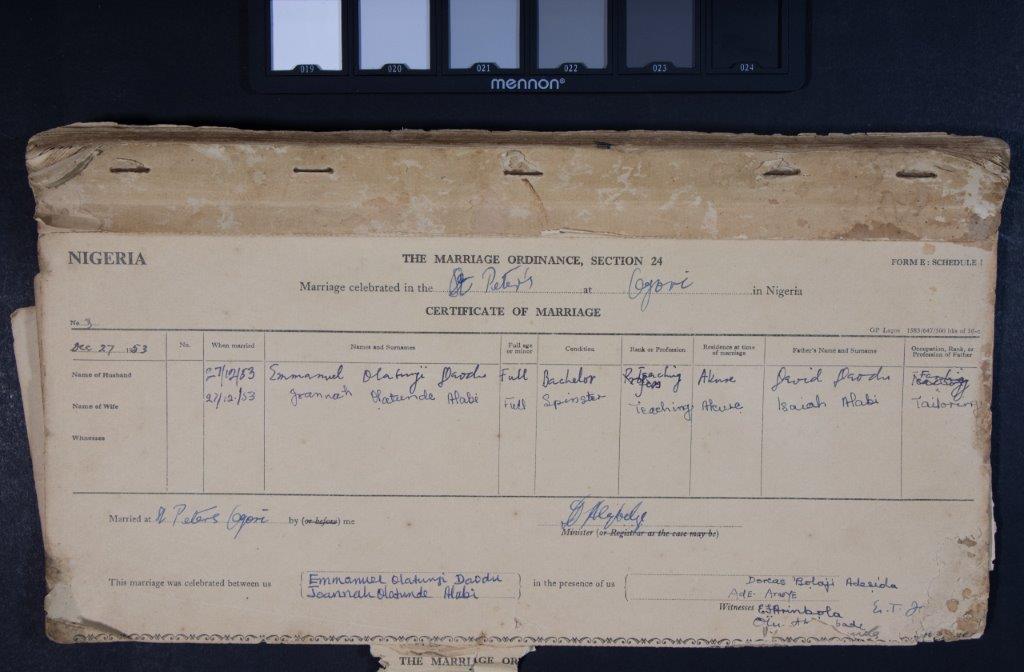 019 020 021 022 023 024
mennon®
NIGERIA
THE MARRIAGE ORDINANCE, SECTION 24
FORM E: SCHEDULE
Marriage celebrated in the St Peter's at Ogori in Nigeria
CERTIFICATE OF MARRIAGE
No. 3
GP Lagos 1583/647/500 bks of
Dec 27 1953 No. When married Names and Surnames Full age or minor Condition Rank or Profession Residence at time of marriage Father's Name and Surname Occupation, Rank, or Profession of Father
Name of Husband 27/12/53 Emmanuel Olatunji Daodu Full Bachelor Teaching Akure David Daodu
Name of Wife 27/12/53 Joannah Olatunde Alabi Full Spinster Teaching Akure Isaiah Alabi Tailoring
Witnesses
Married at St Peters Ogori by (or before) me
Minister (or Registrar as the case may be)
This marriage was celebrated between us Emmanuel Olatunji Daodu in the presence of us Dorcas Bolaji Adesida
Joannah Olatunde Alabi
Ade.
Witnesses E. Arinbola
THE MARRIAGE OR